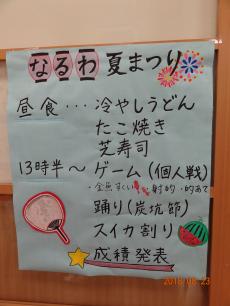 なるわ 夏まつり
昼食･･･冷やしうどん
たこ焼き
芝寿司
13時半〜ゲーム(個人戦)
・金魚すくい ・射的・的あて
踊り(炭坑節)
スイカ割り
成績発表
2018/08/23